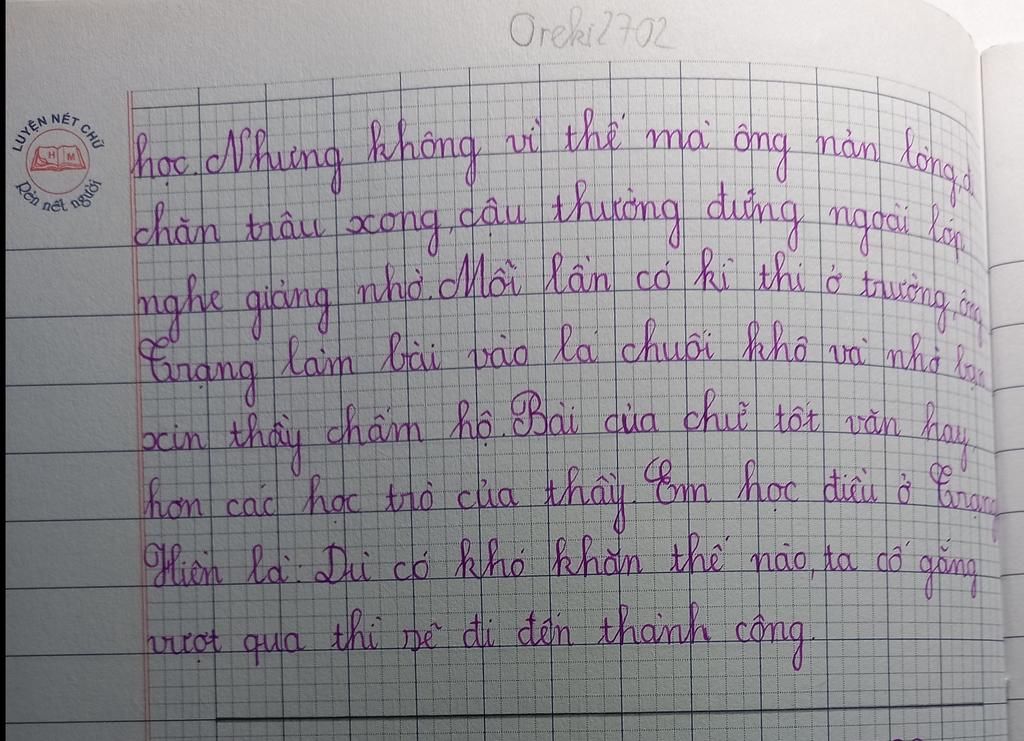 Oreki2702
LUYỆN NÉT CHỮ
H M
Rèn nết người
học. Nhưng không vì thế mà ông nản lòng, đi
chăn trâu xong, cậu thường đứng ngoài lớp
nghe giảng nhờ. Mỗi lần có kì thi ở trường, ông
Trạng làm bài vào lá chuối khô và nhờ bạn
xin thầy chấm hộ. Bài của chữ tốt văn hay
hơn các học trò của thầy. Em học điều ở Trạng
Hiền là: Dù có khó khăn thế nào, ta cố gắng
vượt qua thì sẽ đi đến thành công.